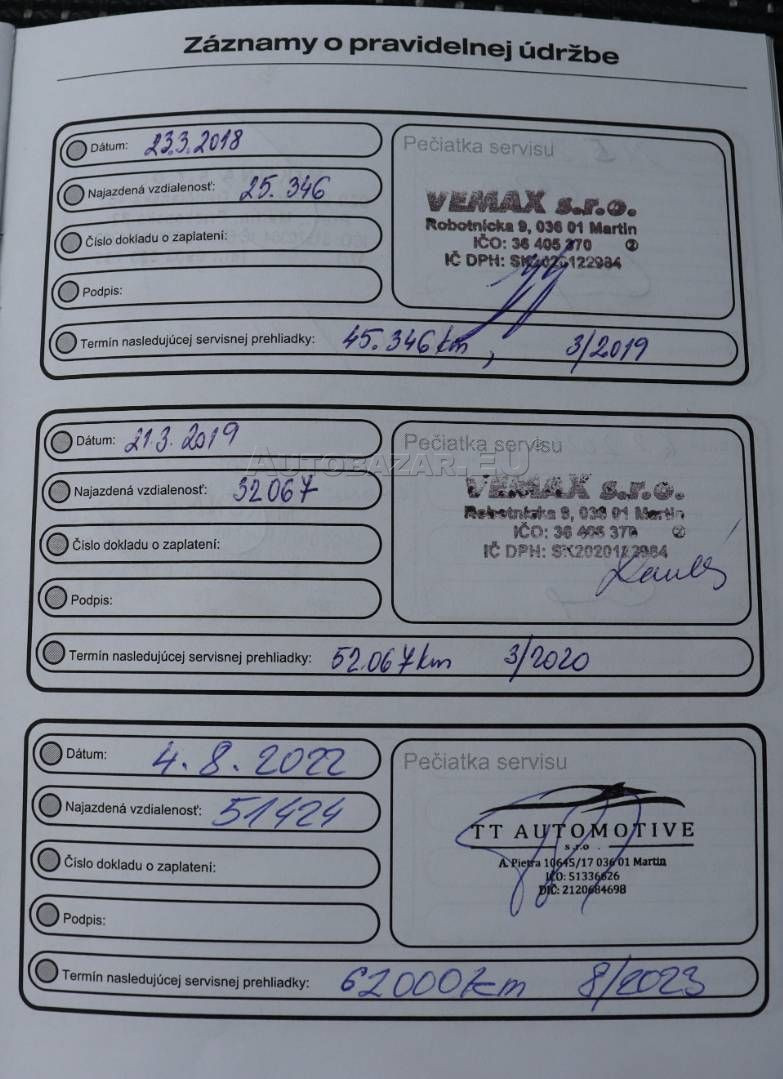 Záznamy o pravidelnej údržbe
Dátum: 23.3.2018
Najazdená vzdialenosť: 25.346
Číslo dokladu o zaplatení:
Podpis:
Pečiatka servisu
VEMAX s.r.o.
Robotnícka 9, 036 01 Martin
IČO: 36 405 370 2
IČ DPH: SK2020122984
Termín nasledujúcej servisnej prehliadky: 45.346 km, 3/2019
Dátum: 21.3.2019
Najazdená vzdialenosť: 32067
Číslo dokladu o zaplatení:
Podpis:
Pečiatka servisu
AUTOBAZAR.EU
VEMAX s.r.o.
Robotnícka 9, 036 01 Martin
IČO: 36 405 370 2
IČ DPH: SK2020122984
Termín nasledujúcej servisnej prehliadky: 52.067 km 3/2020
Dátum: 4.8.2022
Najazdená vzdialenosť: 51424
Číslo dokladu o zaplatení:
Podpis:
Pečiatka servisu
TT AUTOMOTIVE
s.r.o.
A. Pietra 10645/17 036 01 Martin
IČO: 51336626
DIČ: 2120684698
Termín nasledujúcej servisnej prehliadky: 62000 km 8/2023